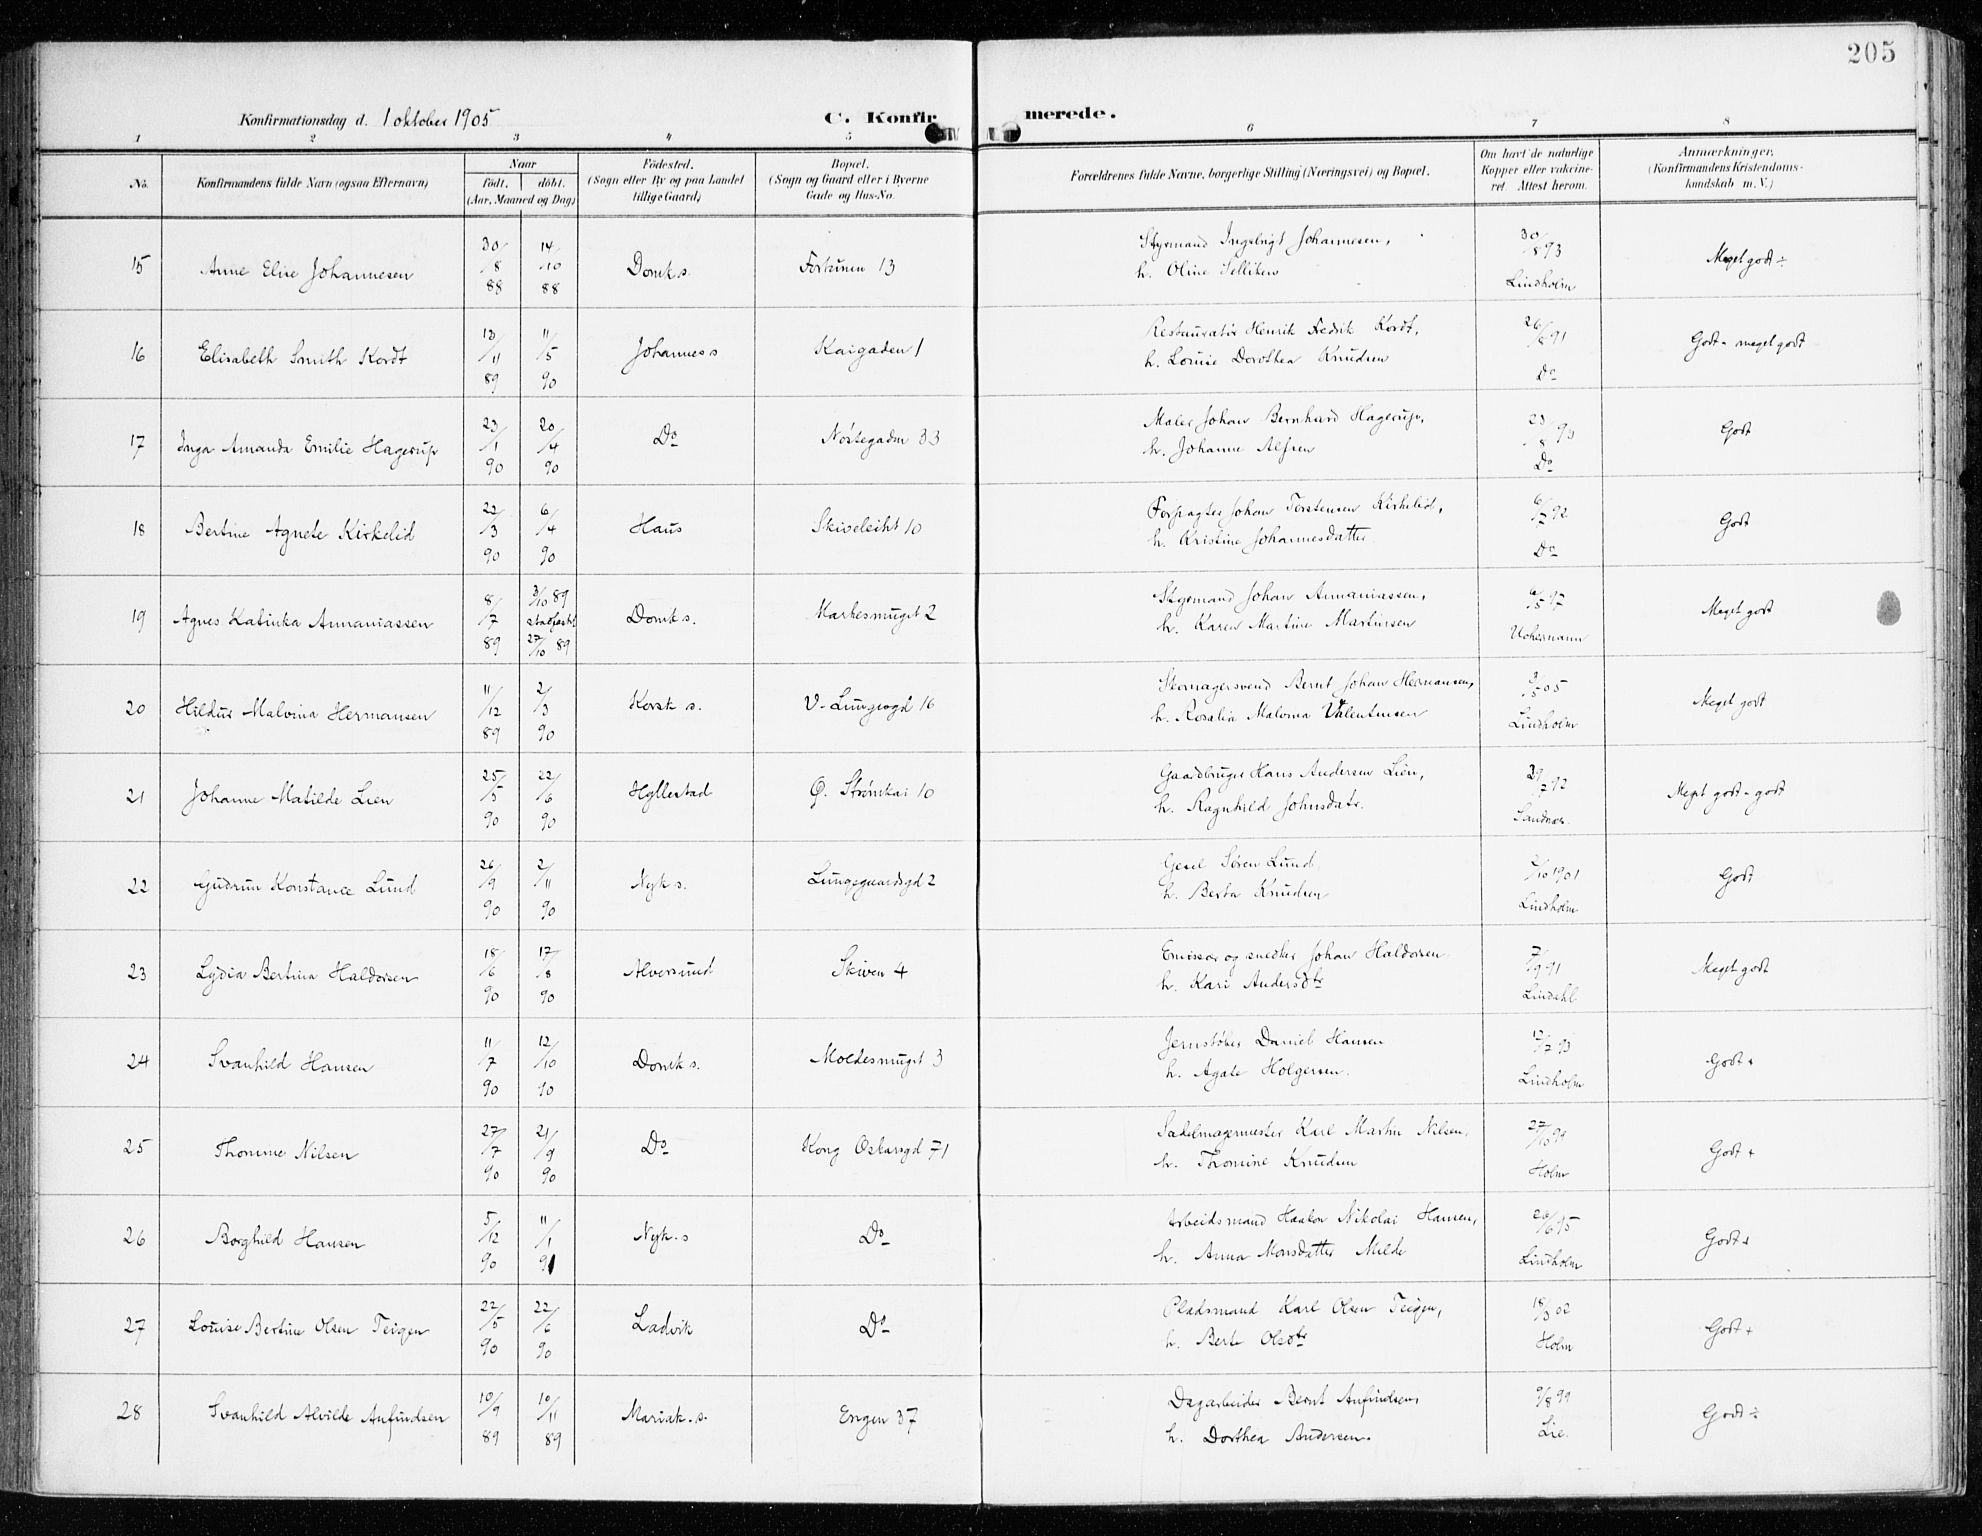 205
Konfirmationsdag d. 1 oktober 1905
C. Konfirmerede.
1 2 3 4 5 6 7 8
No.
Konfirmandens fulde Navn (ogsaa Efternavn)
Naar
født. | døbt.
(Aar, Maaned og Dag)
Fødested.
(Sogn eller By og paa Landet
tillige Gaard)
Bopæl.
(Sogn og Gaard eller i Byerne
Gade og Hus-No.
Forældrenes fulde Navne, borgerlige Stilling (Næringsvei) og Bopæl.
Om havt de naturlige
Kopper eller vakcine-
ret. Attest herom.
Anmærkninger,
(Konfirmandens Kristendoms-
kundskab m. V.)
15 Anne Elise Johannesen 30/8 88 14/10 88 Domk s. Fortunen 13 Styrmand Ingebrigt Johannesen,
h. Oline Selliken 30/8 93 Lindholm Meget godt ÷
16 Elisabeth Smith Kordt 13/11 89 11/5 90 Johannes s Kaigaden 1 Restauratør Henrik Fredrik Kordt,
h. Louise Dorothea Knudsen 26/8 91 Do Godt - meget godt
17 Inga Amanda Emilie Hagerup 23/1 90 20/4 90 Do Nøstegaden 33 Maler Johan Bernhard Hagerup,
h. Johanne Alfsen 23/8 93 Do Godt
18 Bertine Agnete Kirkelid 22/3 90 6/4 90 Haus Skivebakt 10 Forpagter Johan Torstensen Kirkelid,
h. Kristine Johannesdatter 6/7 92 Do Godt
19 Agnes Katinka Annaniassen 8/7 89 3/10 89 stadfæstet 27/10 89 Domk s. Markesmuget 2 Styrmand Johan Annaniassen,
h. Karen Martine Martinsen 6/5 97 Uchermann Meget godt
20 Hildur Malvina Hermansen 11/12 89 2/3 90 Korsk s. V. Lungegd 16 Skomagersvend Bernt Johan Hermansen,
h. Rosalia Malvina Valentinsen 3/5 05 Lindholm Meget godt
21 Johanne Matilde Lien 25/5 90 22/6 90 Hyllestad Ø. Strømkai 10 Gaardbruger Hans Andersen Lien,
h. Ragnhild Johnsdatr. 29/7 92 Sandnæs. Meget godt - godt
22 Gudrun Konstance Lund 26/9 90 2/11 90 Nyk s. Lungegaardsgd 2 Gesel Søren Lund,
h. Berta Knudsen 2/10 1901 Lindholm Godt
23 Lydia Bertina Haldorsen 18/6 90 17/8 90 Alversund Skiven 4 Emissær og snedker Johan Haldorsen
h. Kari Andersdtr 7/9 91 Lindahl Meget godt
24 Svanhild Hansen 11/7 90 12/10 90 Domk s. Moldesmuget 3 Jernstøber Daniel Hansen
h. Agate Holgersen. 12/7 93 Lindholm Godt +
25 Thomine Nilsen 27/7 90 21/9 90 Do Kong Oskarsgd 71 Sadelmagermester Karl Martin Nilsen,
h. Tomine Knudsen 27/10 99 Holm Godt +
26 Borghild Hansen 5/12 90 11/1 91 Nyk. s Do Arbeidsmand Haakon Nikolai Hansen,
h. Anna Monsdatter Milde 26/6 95 Lindholm Godt +
27 Louise Bertine Olsen Teigen 22/5 90 22/6 90 Ladvik Do Pladsmand Karl Olsen Teigen,
h. Berte Olsdtr 18/3 02 Holm Godt +
28 Svanhild Alvilde Anfindsen 10/9 89 10/11 89 Mariak. s. Engen 37 Dagarbeider Bernt Anfindsen,
h. Dorthea Andersen. 9/8 99 Lie. Godt ÷